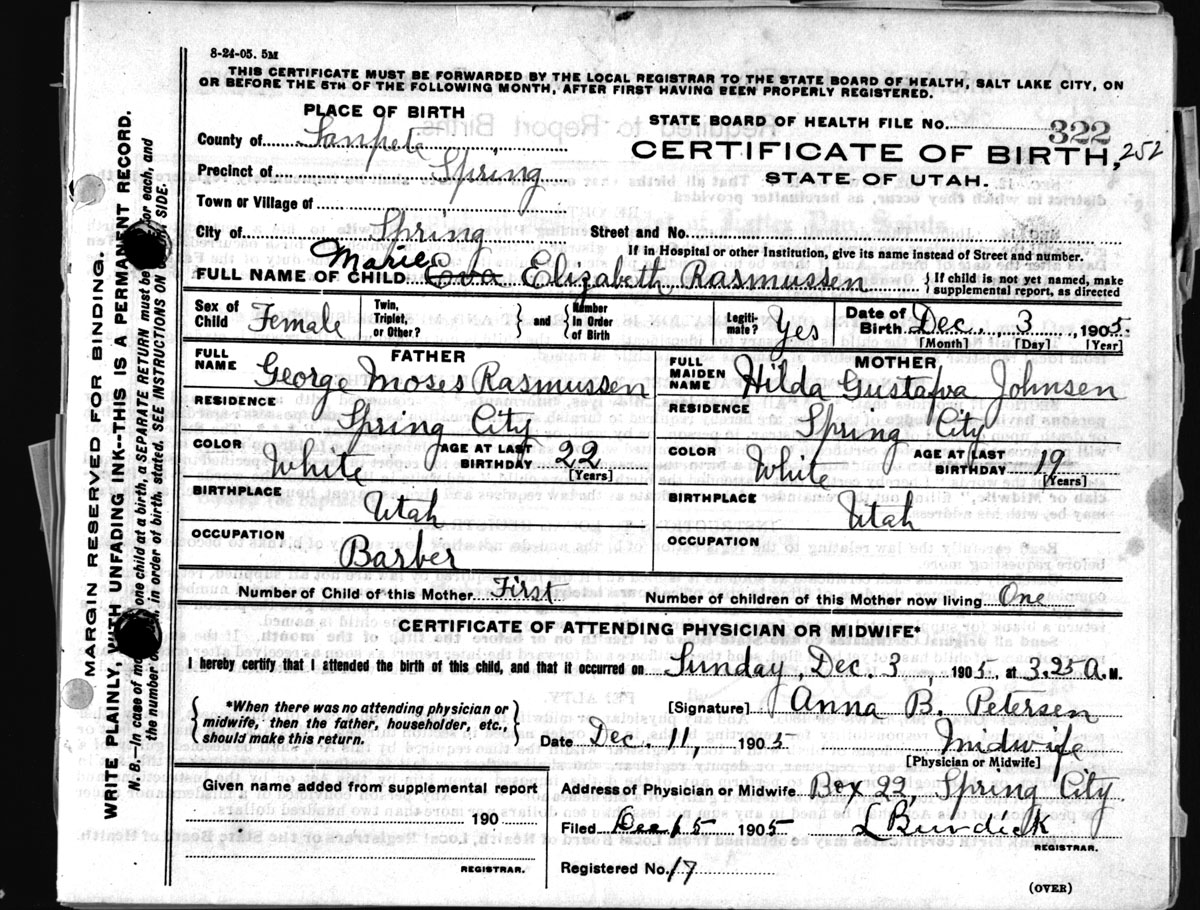 8-24-05. 5M
THIS CERTIFICATE MUST BE FORWARDED BY THE LOCAL REGISTRAR TO THE STATE BOARD OF HEALTH, SALT LAKE CITY, ON
OR BEFORE THE 5TH OF THE FOLLOWING MONTH, AFTER FIRST HAVING BEEN PROPERLY REGISTERED.
PLACE OF BIRTH
County of Sanpete
Precinct of Spring
Town or Village of
City of Spring
STATE BOARD OF HEALTH FILE No. 322
CERTIFICATE OF BIRTH, 252
STATE OF UTAH.
Street and No.
If in Hospital or other Institution, give its name instead of Street and number.
FULL NAME OF CHILD Marie Eva Elizabeth Rasmussen { If child is not yet named, make
supplemental report, as directed
Sex of Child Female
Twin, Triplet, or Other? } and { Number in Order of Birth
Legitimate? Yes
Date of Birth Dec. 3, 1905.
[Month] [Day] [Year]
FATHER
FULL NAME George Moses Rasmussen
RESIDENCE Spring City
COLOR White AGE AT LAST BIRTHDAY 22
[Years]
BIRTHPLACE Utah
OCCUPATION Barber
MOTHER
FULL MAIDEN NAME Hilda Gustafva Johnsen
RESIDENCE Spring City
COLOR White AGE AT LAST BIRTHDAY 19
[Years]
BIRTHPLACE Utah
OCCUPATION
Number of Child of this Mother First Number of children of this Mother now living One
CERTIFICATE OF ATTENDING PHYSICIAN OR MIDWIFE*
I hereby certify that I attended the birth of this child, and that it occurred on Sunday, Dec. 3, 1905, at 3.25 A. M.
{ *When there was no attending physician or
midwife, then the father, householder, etc.,
should make this return. }
[Signature] Anna B. Petersen
Date Dec. 11, 1905 Midwife
[Physician or Midwife]
Given name added from supplemental report
190
REGISTRAR.
Address of Physician or Midwife Box 22, Spring City
Filed Dec 15 1905 L Burdick
REGISTRAR.
Registered No. 17
(OVER)
MARGIN RESERVED FOR BINDING.
WRITE PLAINLY, WITH UNFADING INK--THIS IS A PERMANENT RECORD.
N. B.—In case of more one child at a birth, a SEPARATE RETURN must be for each, and
the number in order of birth, stated. SEE INSTRUCTIONS ON SIDE.